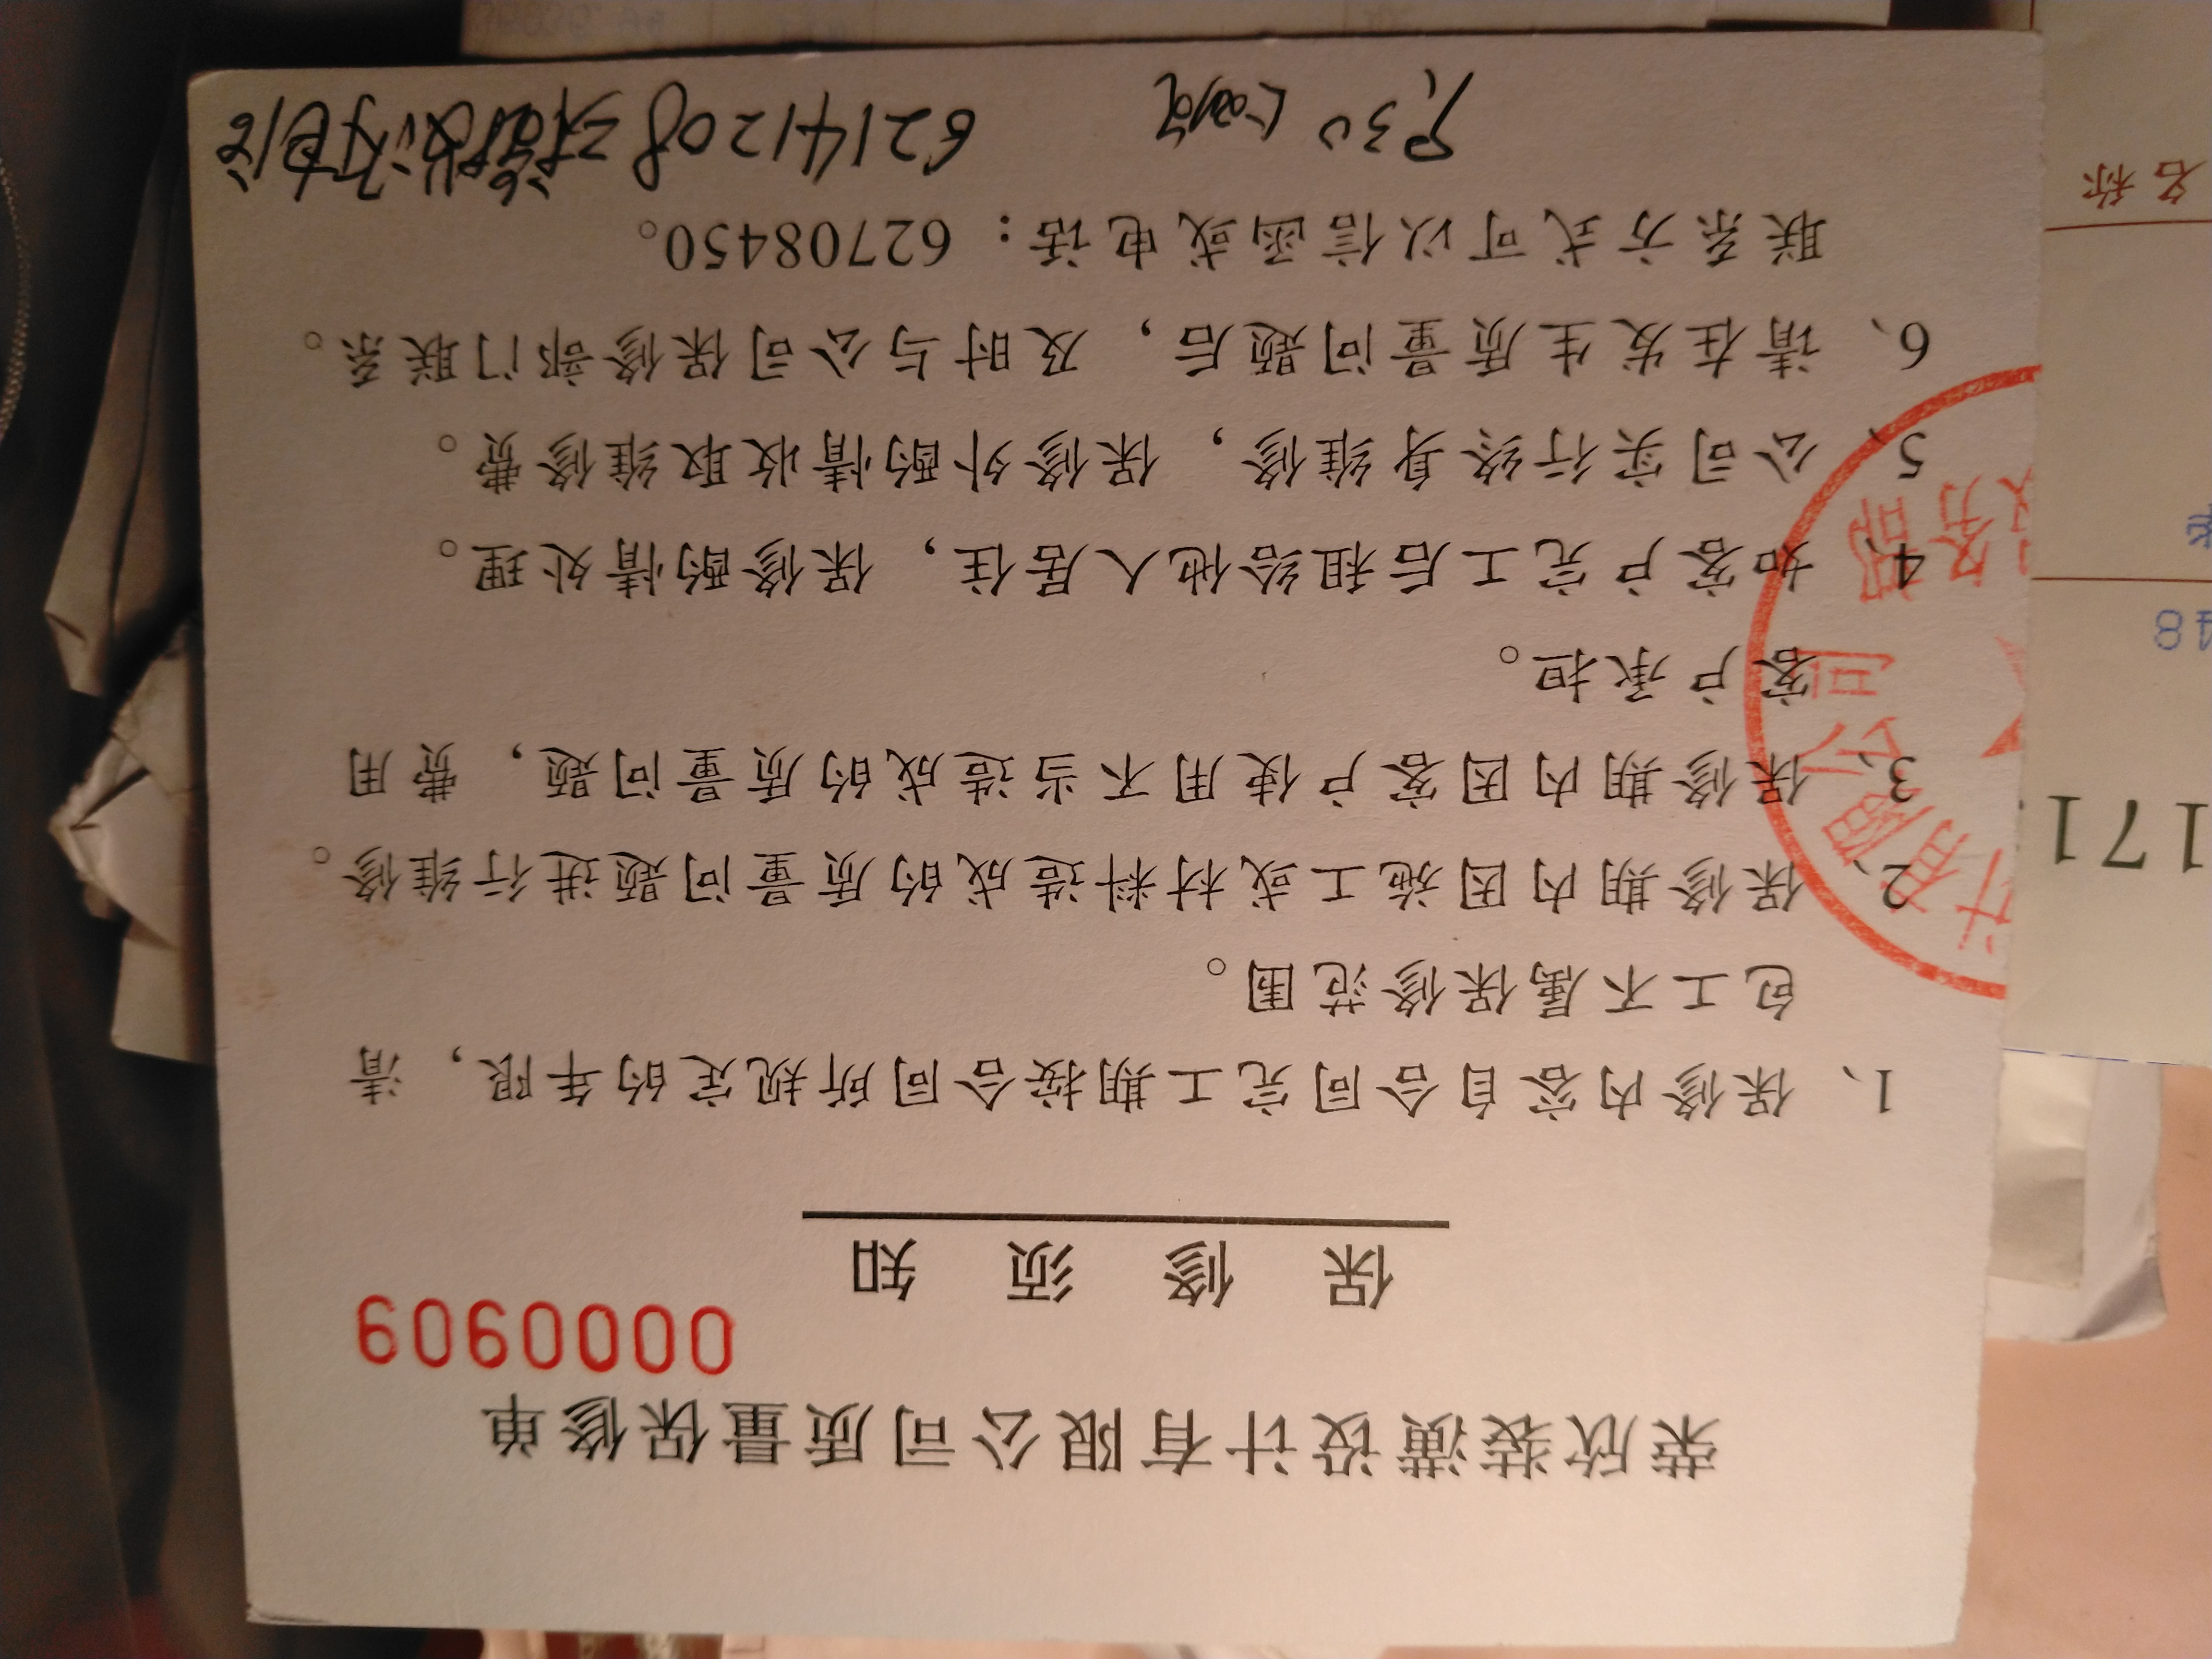 荣欣装潢设计有限公司质量保修单
0000909
保修须知
1、保修内容自合同完工期按合同所规定的年限，清
包工不属保修范围。
2、保修期内因施工或材料造成的质量问题进行维修。
3、保修期内因客户使用不当造成的质量问题，费用
客户承担。
4、如客户完工后租给他人居住，保修酌情处理。
5、公司实行终身维修，保修外酌情收取维修费。
6、请在发生质量问题后，及时与公司保修部门联系。
联系方式可以信函或电话：62708450。
62141208
计有限公司
务部
名称
48
171